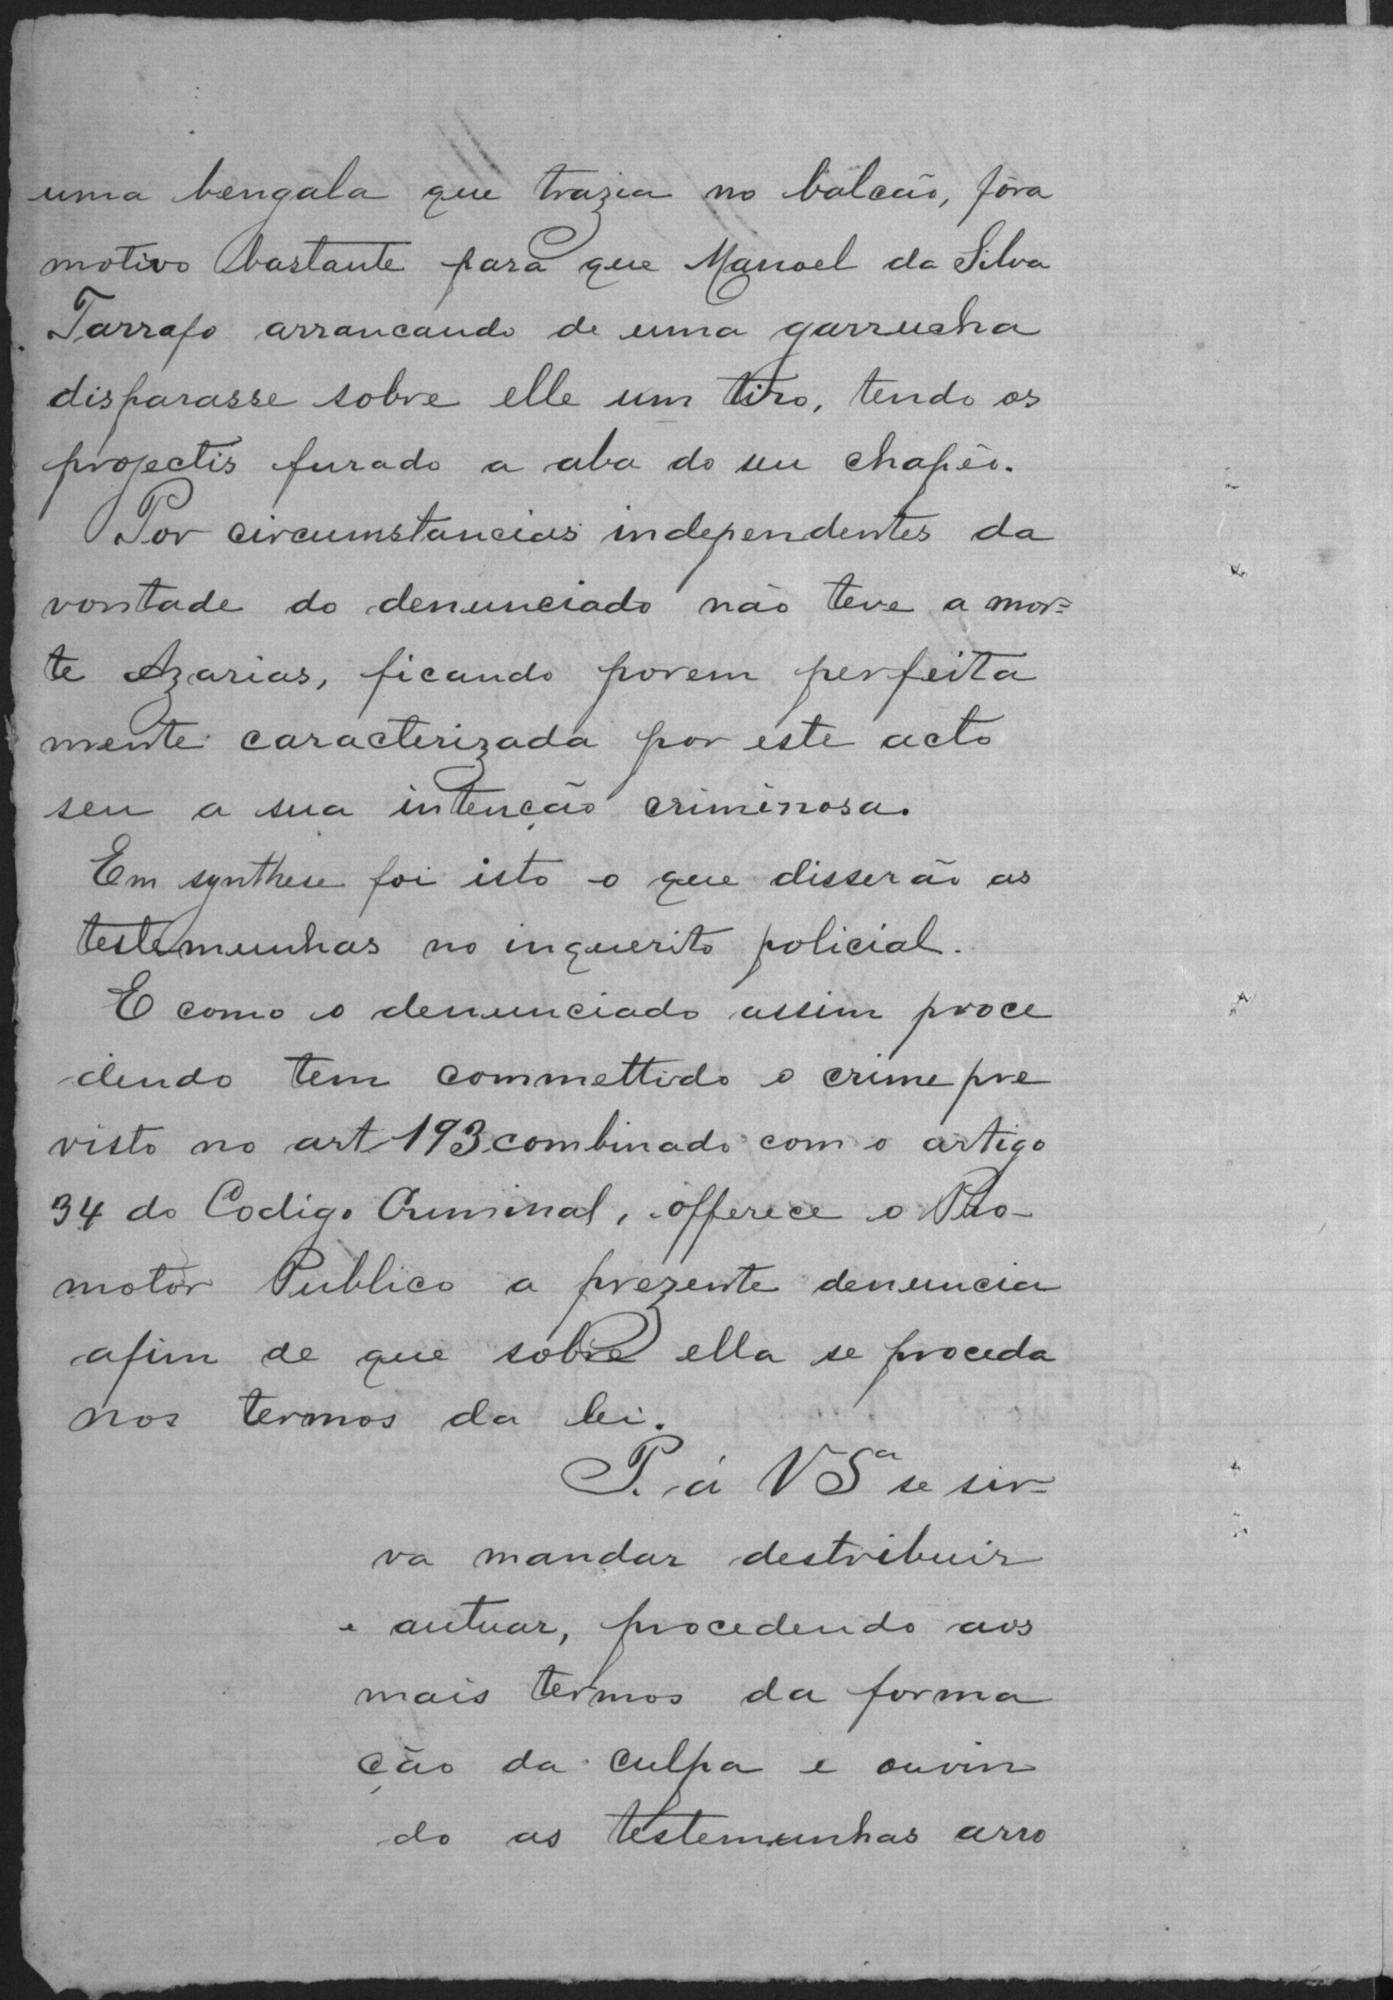 uma bengala que trazia no balcão, fôra
motivo bastante para que Manoel da Silva
Tarrafo arrancando de uma garrucha
disparasse sobre elle um tiro, tendo os
projectis furado a aba do seu chapêo.
Por circumstancias independentes da
vontade do denunciado não teve a mor=
te Azarias, ficando porem perfeita
mente caracterizada por este acto
seu a sua intenção criminosa.
Em synthese foi isto o que disserão as
testemunhas no inquerito policial.
E como o denunciado assim proce
dendo tem commettido o crime pre
visto no art 193 combinado com o artigo
34 do Codigo Criminal, offerece o Pro-
motor Publico a prezente denuncia
afim de que sobre ella se proceda
nos termos da lei.
P. á VSª se sir-
va mandar destribuir
e autuar, procedendo aos
mais termos da forma
ção da culpa e ouvin
do as testemunhas arro